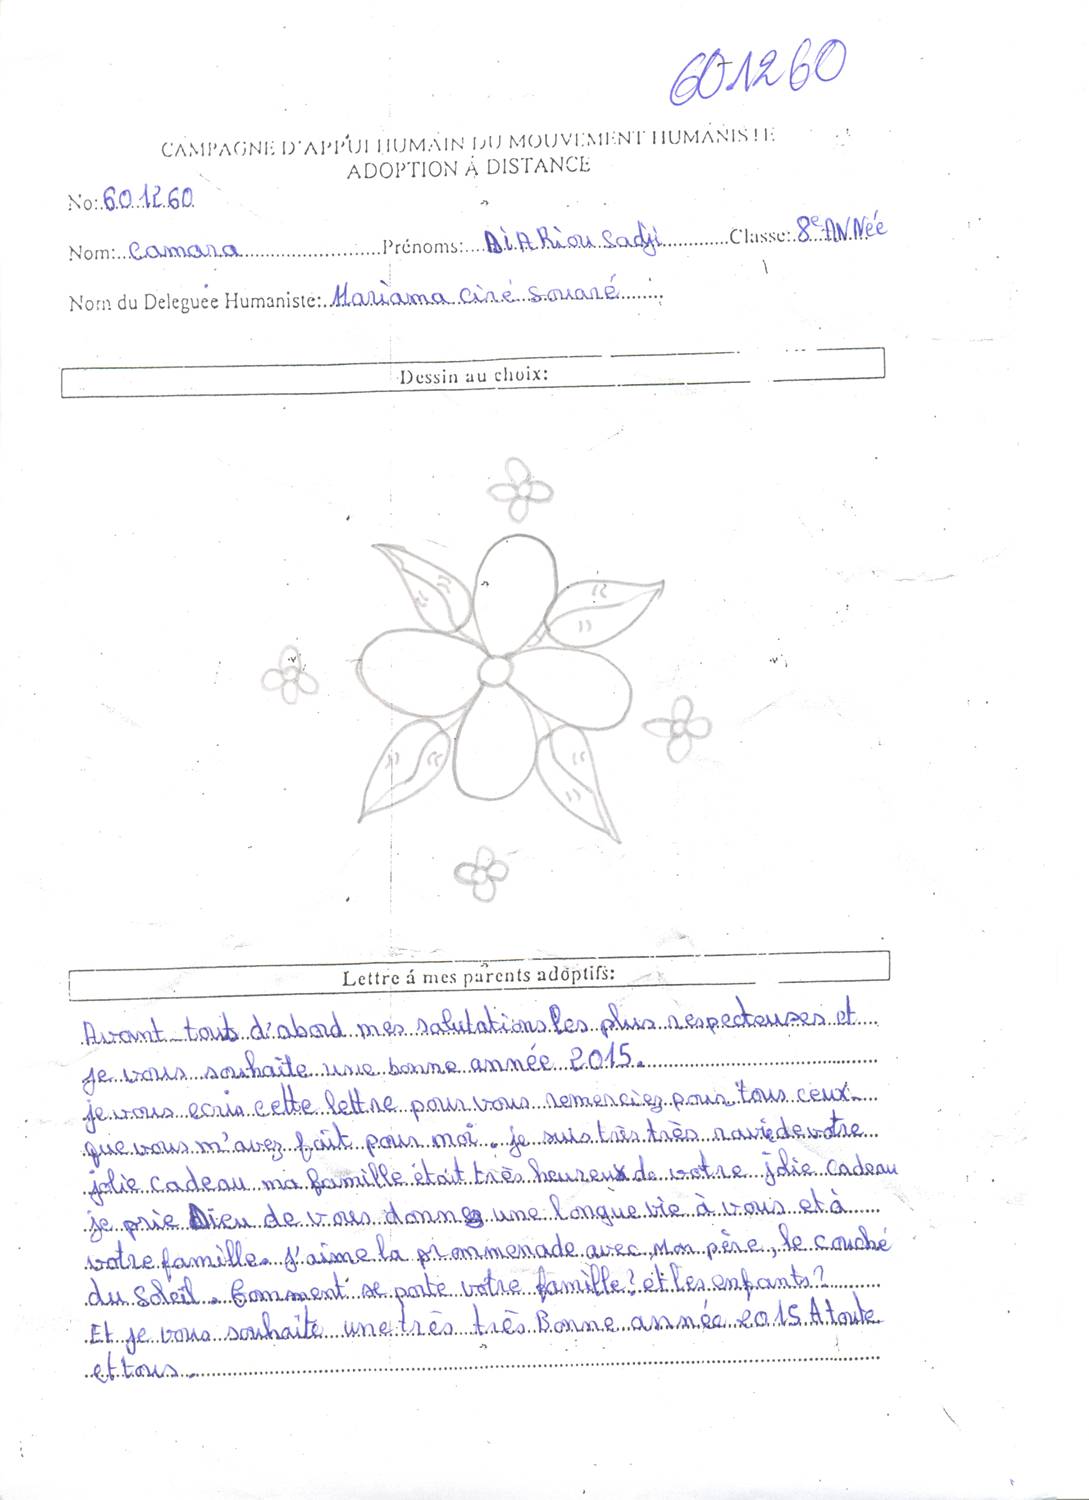 601260
CAMPAGNE D'APPUI HUMAIN DU MOUVEMENT HUMANISTE
ADOPTION Á DISTANCE
No:.60.12.60
Nom:..Camara..........................Prénoms:....DiARiou Sadji.............Classe:.8e ANNée
Nom du Deleguée Humaniste:..Mariama Ciré Souaré.......
Dessin au choix:
Lettre á mes parents adoptifs:
Avant tout d'abord mes salutations les plus respecteuses et....
je vous souhaite une bonne année 2015.
je vous ecris cette lettre pour vous remerciez pour tous ceux
que vous m'avez fait pour moi. je suis très très ravie de votre
jolie cadeau ma famille était très heureux de votre jolie cadeau
je prie Dieu de vous donner une longue vie à vous et à
votre famille. J'aime la prommenade avec Mon père, le couché
du Soleil. Comment se porte votre famille? et les enfants?
Et je vous souhaite une très très Bonne année 2015 A toute
et tous.